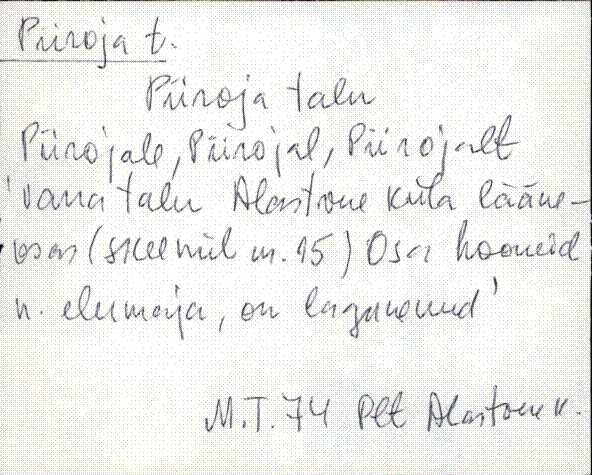 Piiroja t.
Piiroja talu
Piirojale, Piirojal, Piirojalt
'vana talu Alastvere küla lääne-
osas (skeemil nr. 15) Osa hooneid
n. elumaja, on lagunenud'
M.T. 74 Plt Alastvere k.